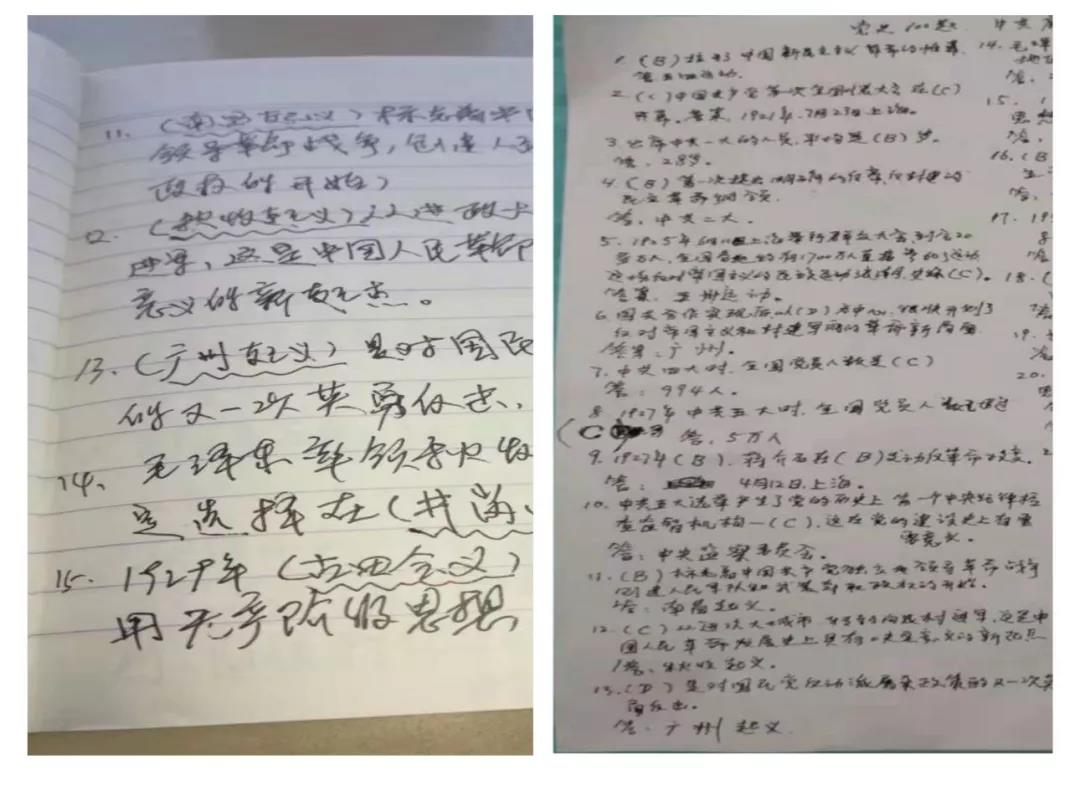 11. (南昌起义) 标志着
领导革命战争，创建人
政权的开始）
12. (秋收起义) 从进
，这是中国人民革命
意义的新起点。
13. (广州起义) 是对国民
的又一次英勇反击，
14. 毛泽东率领秋收
选择在(井冈
15. 1929年 (古田会议)
用无产阶级思想
党史100题 中共
1. (B) 拉开了中国新民主主义革命的帷幕
答 五四运动.
2. (C) 中国共产党第一次全国代表大会在(C)
开幕. 答案, 1921年.7月23日上海.
3. 出席中共一大的人员, 平均是(B)岁.
答. 28岁.
4. (B) 第一次提出明确的反帝, 反封建的
民主革命纲领.
答. 中共二大.
5. 1925年6月11日上海举行群众大会, 到会20
多万人, 全国各地约有1700万人直接参加了运动
(C)。
答案. 五卅运动.
6. 国共合作实现后, 以(D)为中心, 很快开创了
反对帝国主义和封建军阀的革命新局面.
答案: 广州。
7. 中共四大时. 全国党员人数是(C)
答: 994人.
8. 1927年中共五大时. 全国党员人数超过
(C) 答. 5万人
9. 1927年(B). 蒋介石在(B)发动反革命政变.
答: 4月12日. 上海.
10. 中共五大选举产生了党的历史上第一个中央纪律检
查监督机构—(C). 这在党的建设史上有重
要意义.
答: 中央监察委员会.
11. (B) 标志着中国共产党独立地领导革命战争
创建人民军队和武装夺取政权的开始.
答: 南昌起义.
12. (C) 从进攻大城市 转到向农村进军, 这是中
国人民革命发展史上具有决定意义的新起点
答. 秋收起义.
13. (D) 是对国民党反动派屠杀政策的又一次英
勇反击.
答. 广州起义.
14. 毛泽
答.
15. 1
思想
答.
16. (B
答.
17. 19
18. (
19.
20.